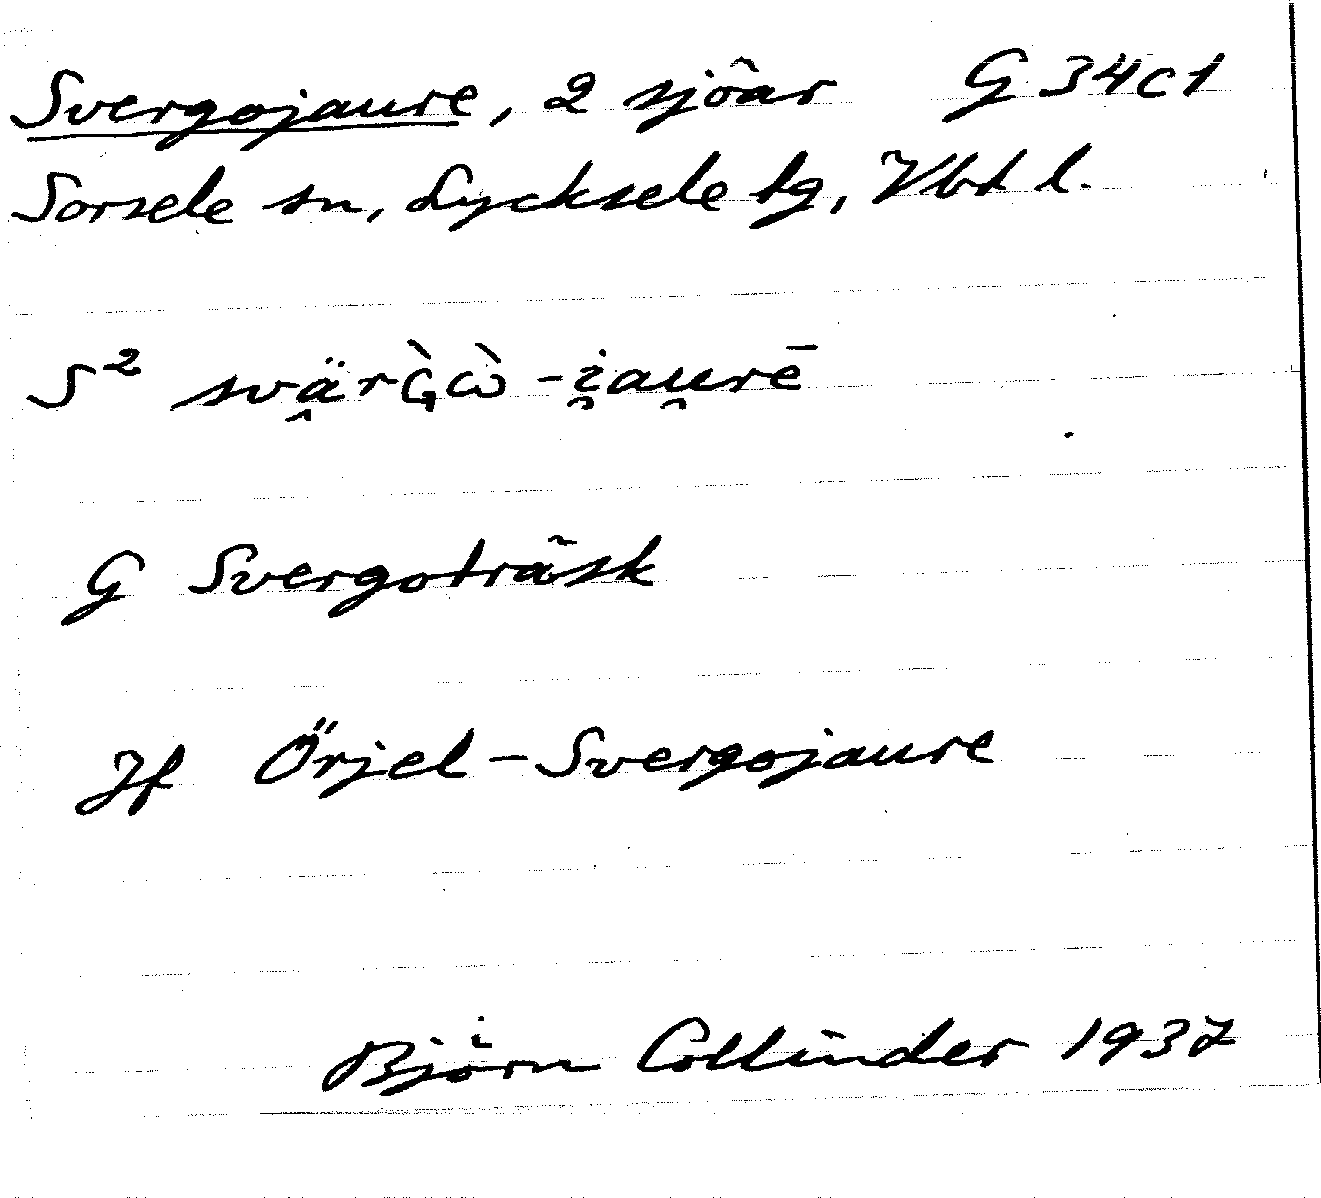 Svergojaure, 2 sjöar G 34c1
Sorsele sn, Lycksele tg, Vbt l.
S² svä̭rG̀ὼ-i̯au̯rē
G Svergoträsk
Jf Örjel-Svergojaure
Björn Collinder 1937